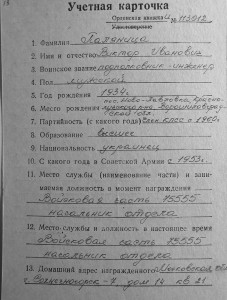 Учетная карточка
Орденская книжка
1. Фамилия Паляница
2. Имя и отчество Виктор Иванович
3. Воинское звание подполковник-инженер
4. Пол мужской
5. Год рождения 1934г.
6. Место рождения
7. Партийность (с какого года) член КПСС с 1960г.
8. Образование высшее
9. Национальность украинец
10. С какого года в Советской Армии с 1953г.
11. Место службы (наименование части) и зани-
маемая должность в момент награждения
Войсковая часть
начальник отдела
12. Место службы и должность в настоящее время
Войсковая часть
начальник отдела
13. Домашний адрес награжденного Московская обл
г. Солнечногорск-7, дом 14 кв 21